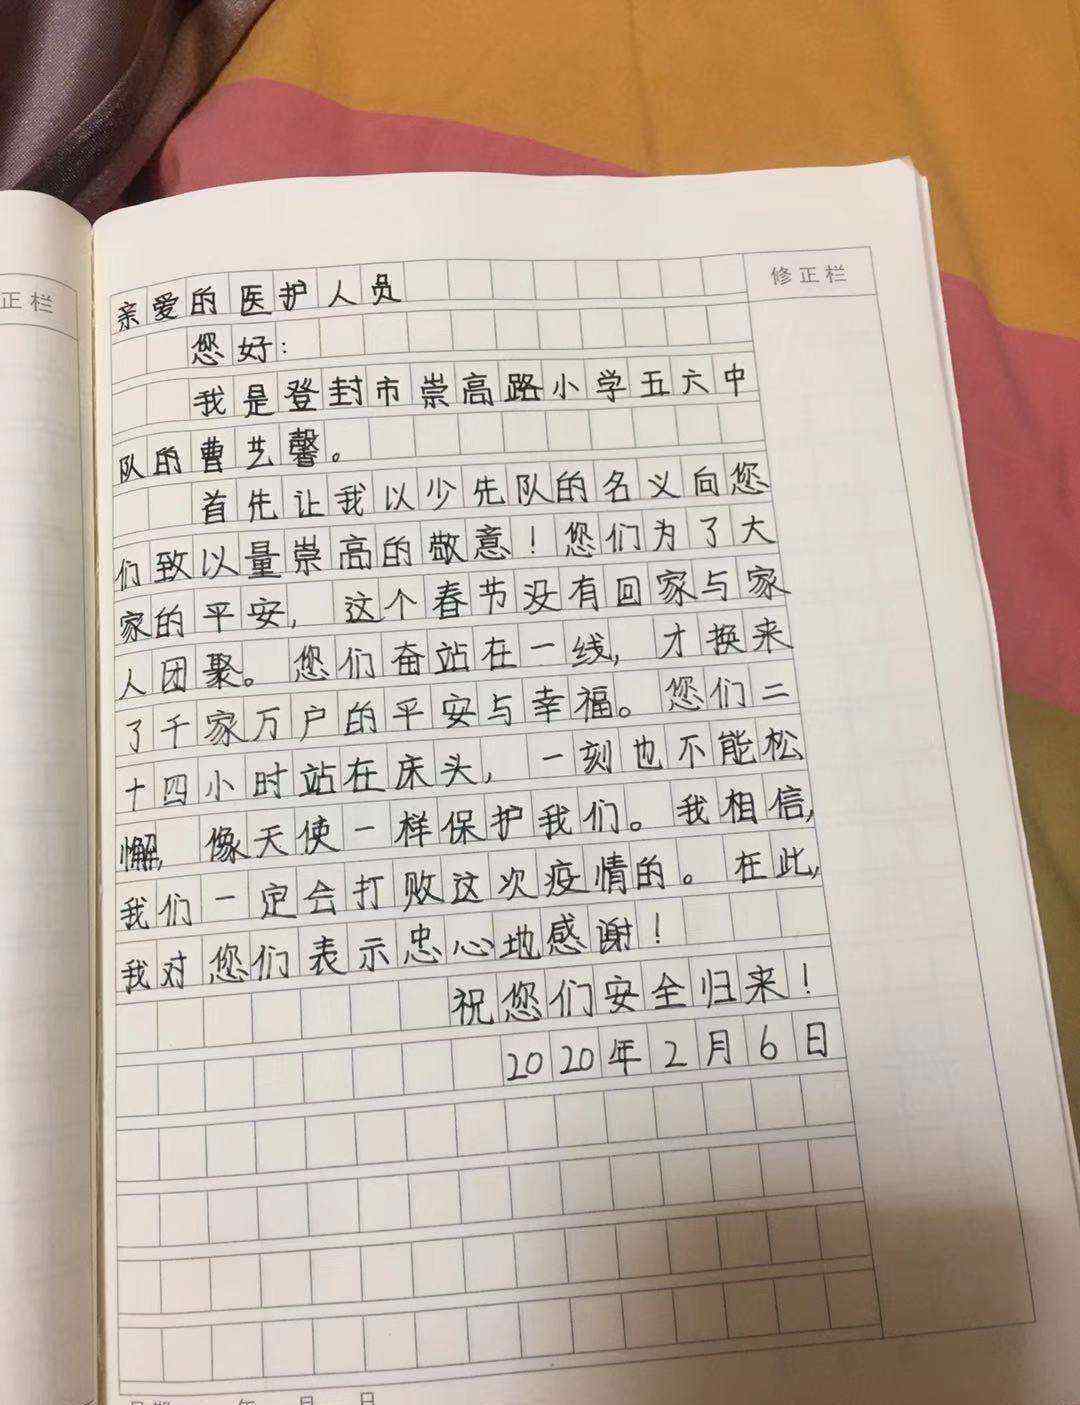 正栏
修正栏
亲爱的医护人员
您好：
我是登封市崇高路小学五六中
队的曹艺馨。
首先让我以少先队的名义向您
们致以量崇高的敬意！您们为了大
家的平安，这个春节没有回家与家
人团聚。您们奋站在一线，才换来
了千家万户的平安与幸福。您们二
十四小时站在床头，一刻也不能松
懈，像天使一样保护我们。我相信，
我们一定会打败这次疫情的。在此，
我对您们表示忠心地感谢！
祝您们安全归来！
2020年2月6日
年 月 日